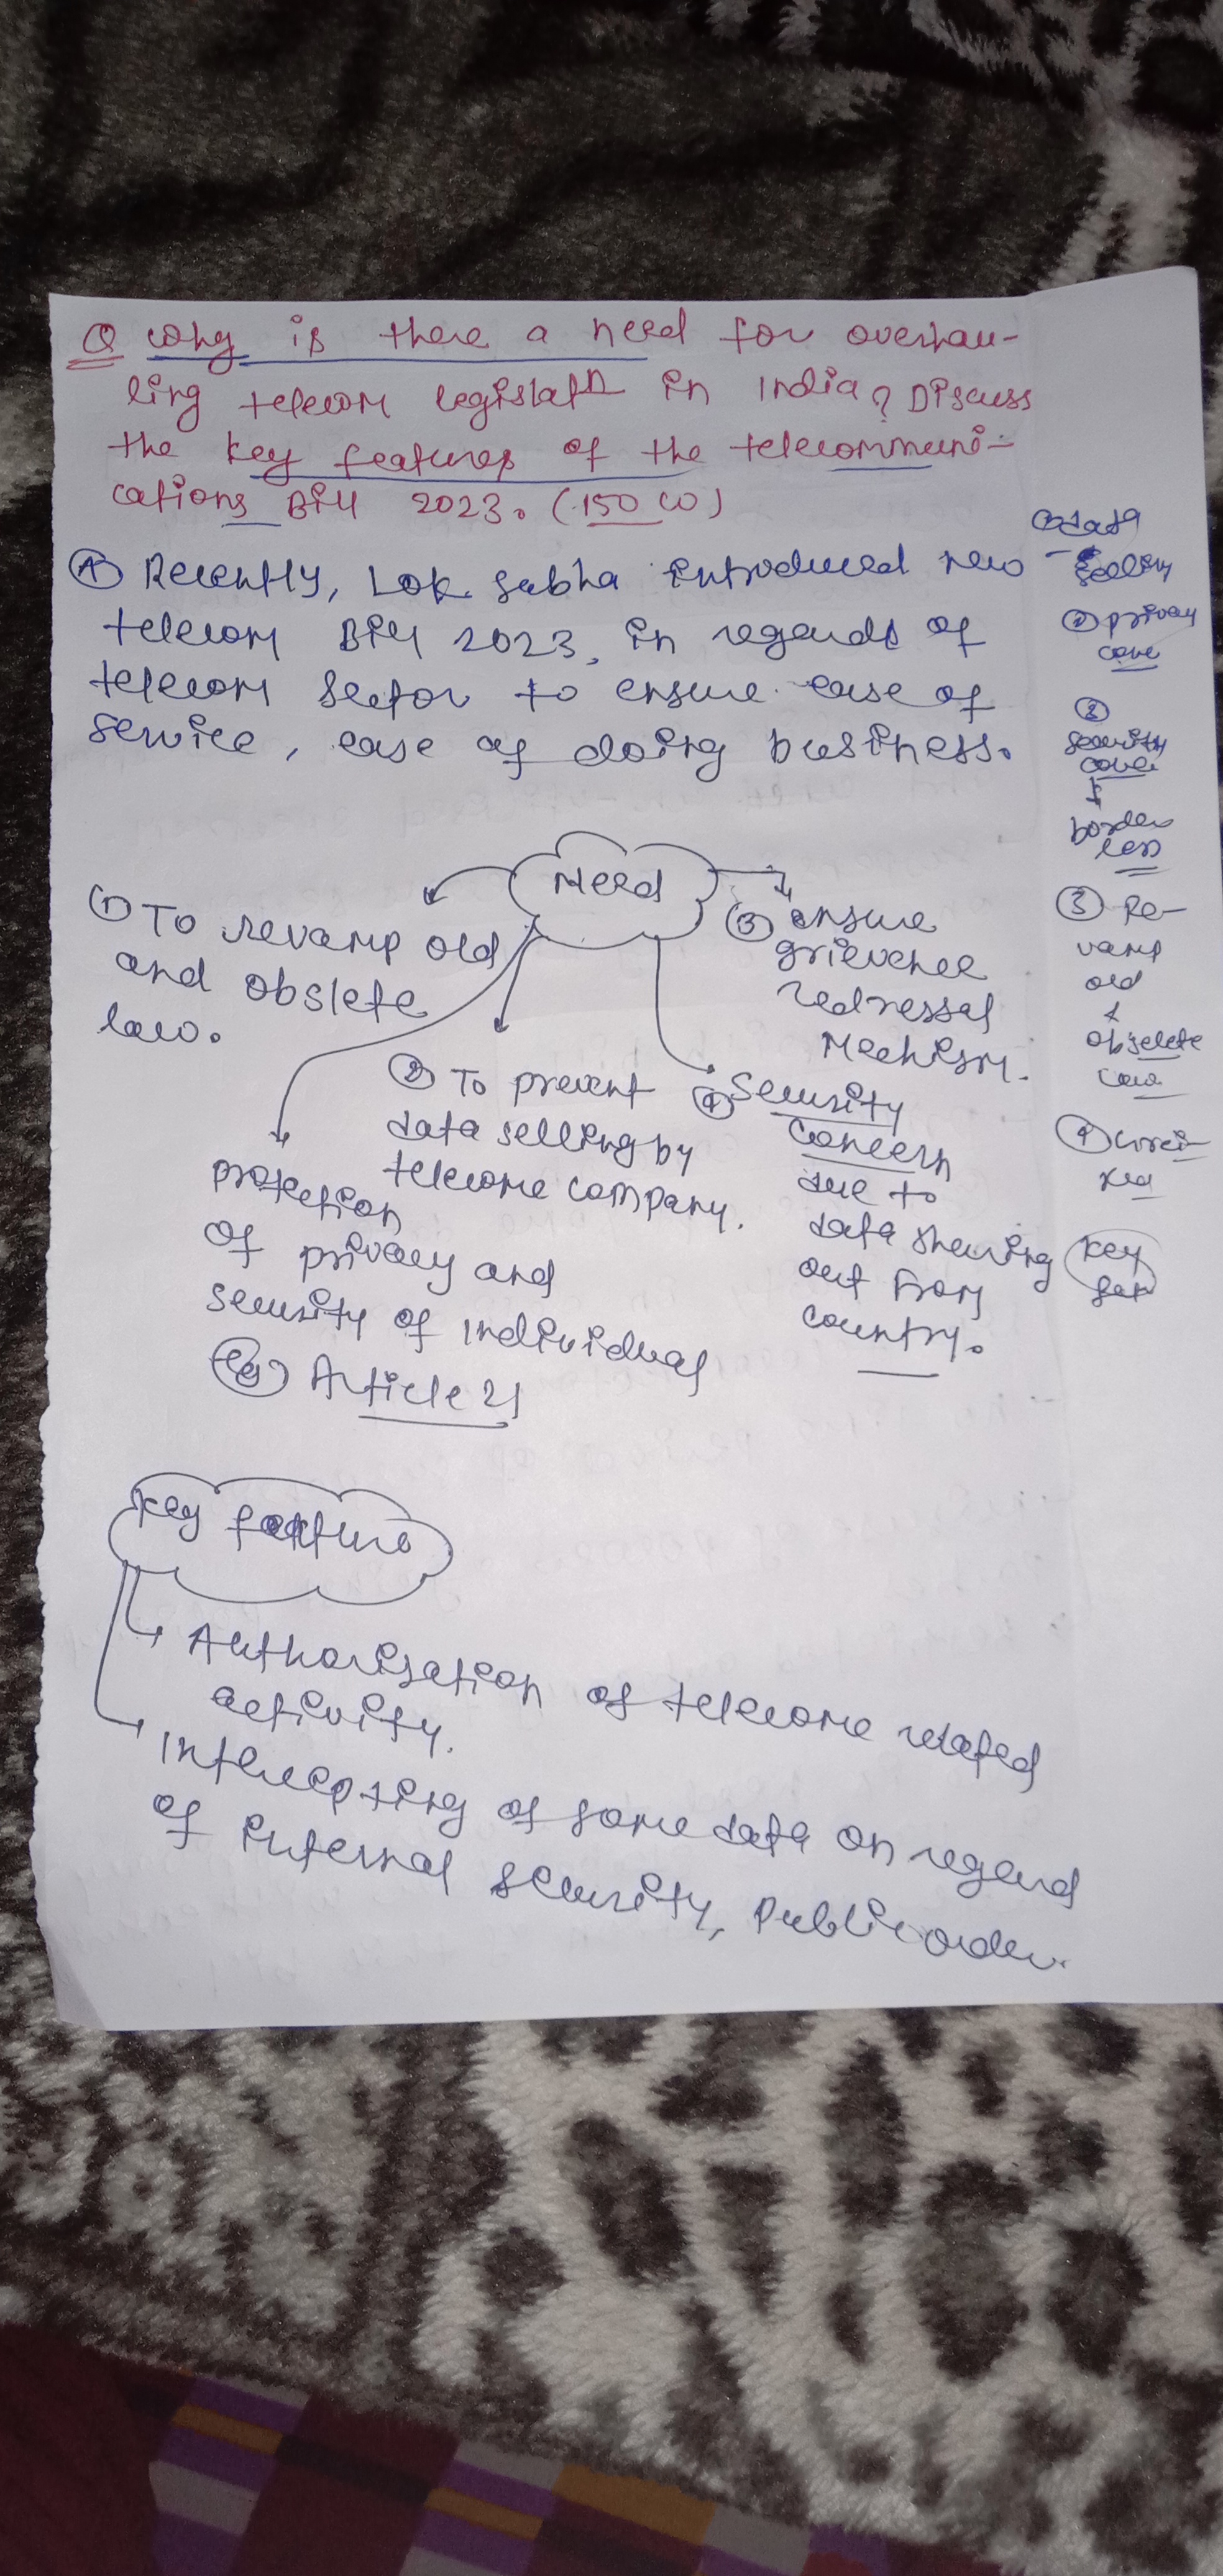 Q Why is there a need for overhau-
ling telecom legislatn in India? Discuss
the key features of the telecommuni-
cations Bill 2023. (150 W)
(A) Recently, Lok sabha introduced new
telecom Bill 2023, in regards of
telecom sector to ensure ease of
service, ease of doing business.
Need
① To revamp old
and obslete
law.
② To prevent
data selling by
telecome company.
③ ensure
grievence
redressal
Mechism.
④ Security
concern
due to
data shearing
out from
country.
protection
of privacy and
security of individual
eg Article 21
Key feature
Authorisation of telecome related
activity.
Intercepting of some data on regard
of internal security, Public order.
① data
- selling
② privacy
②
security
↓
border
less
③ Re-
vamp
old
&
obselete
law
④
Key